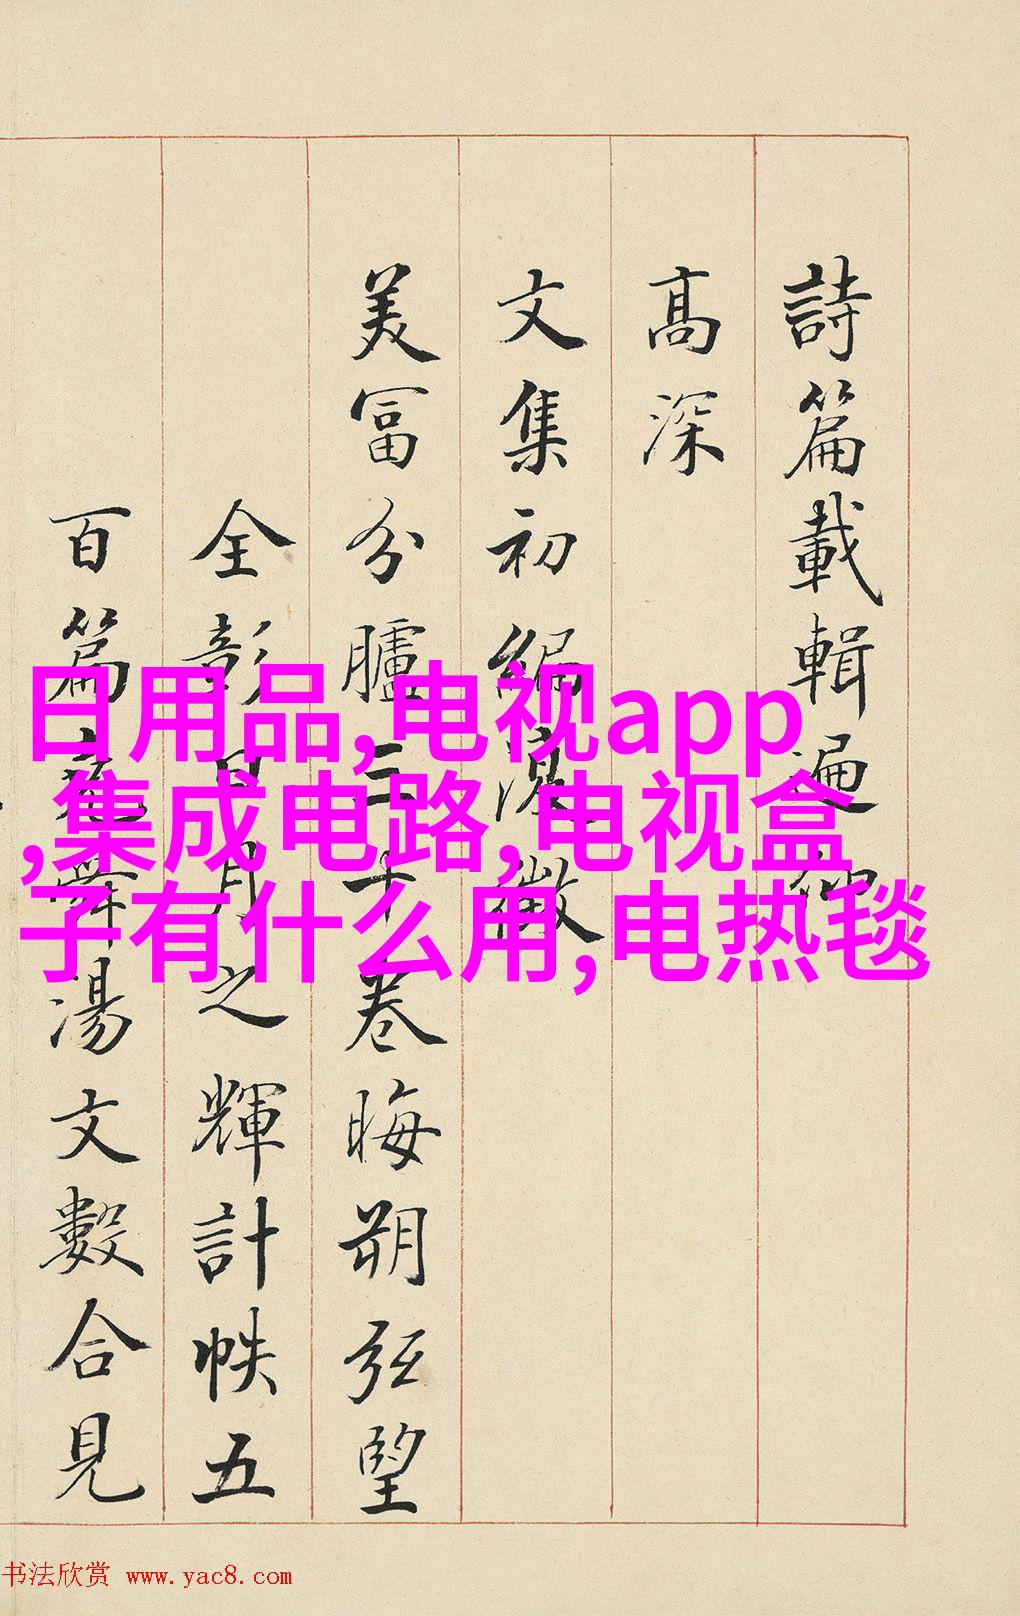 詩篇載輯遍仰
高深
文集初編復徵
美富分臚三十卷晦朔弦望
全彰日月之輝計帙五
百篇堯舜湯文數合見
日用品,电视app
,集成电路,电视盒
子有什么用,电热毯
书法欣赏 www.yac8.com